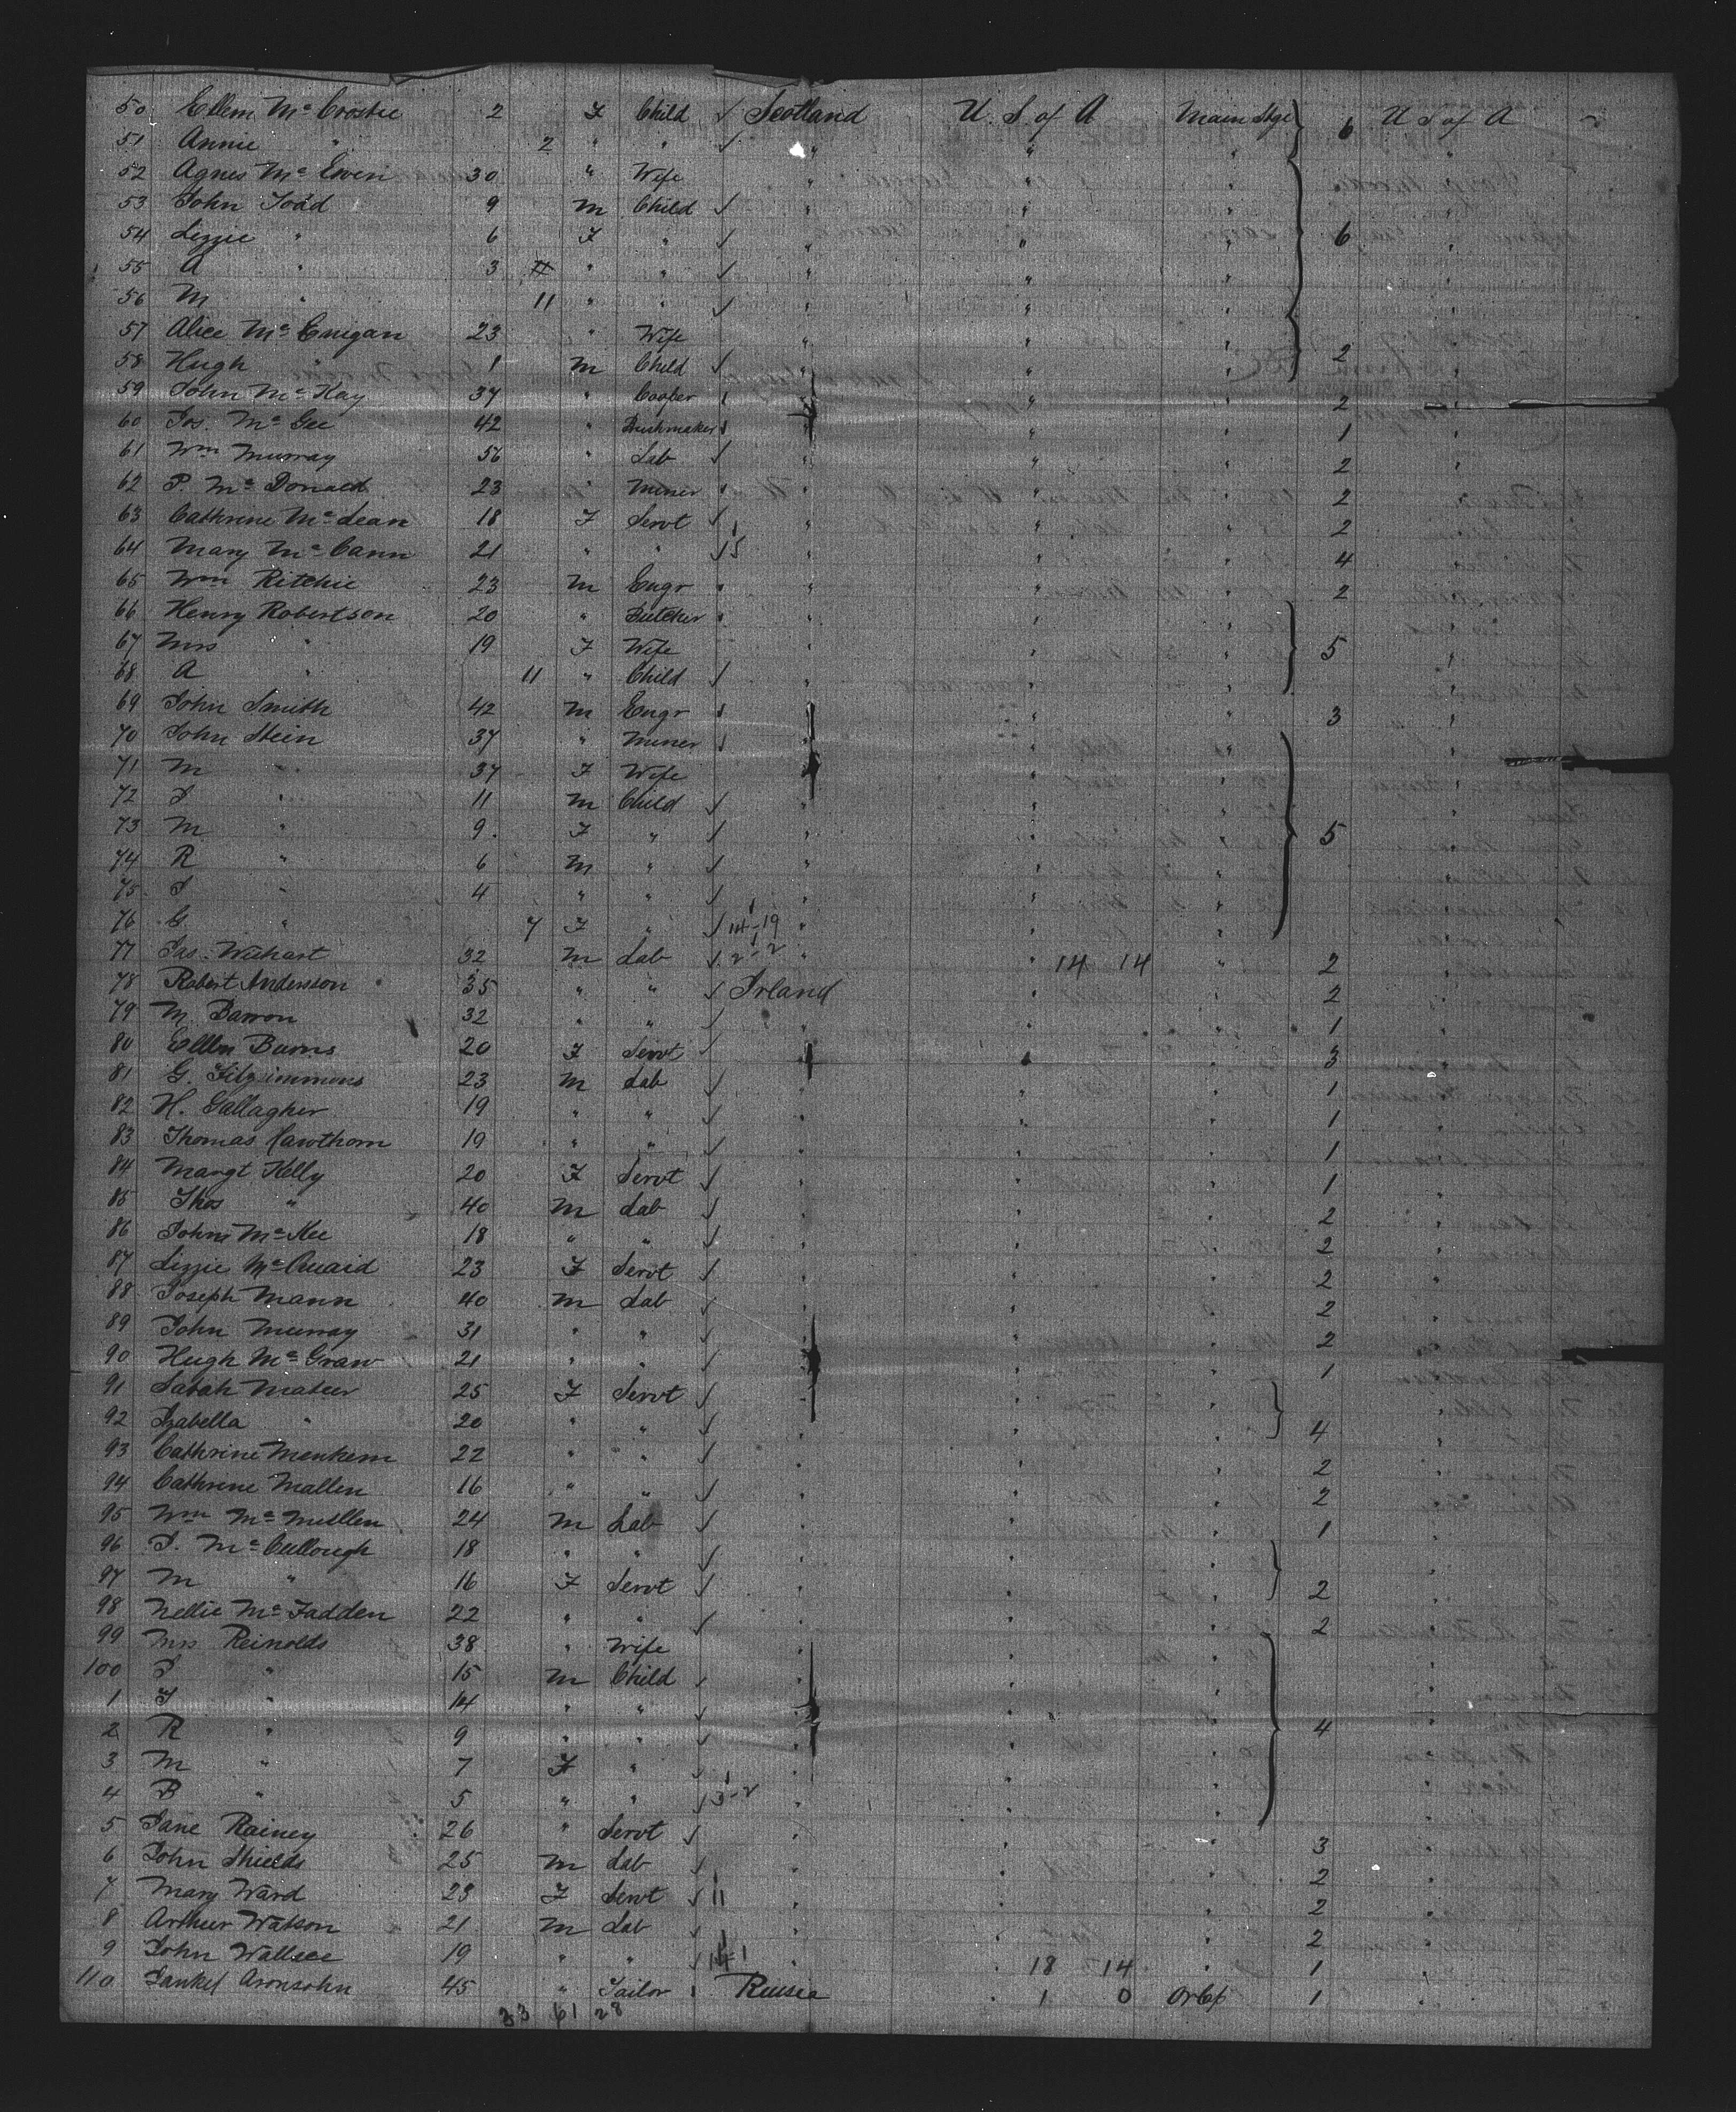 50 Ellem McCrostie 2 F Child ✓ Scotland U. S. of A Main Stge 6 U S of A
51 Annie " 2 " " ✓ " " " "
52 Agnes McEwen 30 " Wife " " " "
53 John Todd 9 M Child ✓ " " " "
54 Lizzie " 6 F " ✓ " " " 6 "
55 A " 3 " " ✓ " " " "
56 M " 11 " " ✓ " " " "
57 Alice McEnigan 23 " Wife " " " "
58 Hugh " 1 M Child ✓ " " " 2 "
59 John McKay 37 " Cooper " " " 2 "
60 Jos. McGee 42 " Brushmaker " " " 1 "
61 Wm Murray 56 " Lab ✓ " " " 2 "
62 P. McDonald 23 " Miner " " " 2 "
63 Cathrine McLean 18 F Servt ✓ " " " 2 "
64 Mary McCann 21 " " ✓ 5 " " " 4 "
65 Wm Ritchie 23 M Engr " " " 2 "
66 Henry Robertson 20 " Butcher " " " "
67 Mrs " 19 F Wife " " " 5 "
68 A " 11 " Child ✓ " " " "
69 John Smith 42 M Engr " " " 3 "
70 John Stein 37 " Miner " " " "
71 M " 37 F Wife " " " "
72 J " 11 M Child ✓ " " " "
73 M " 9 F " ✓ " " " 5 "
74 R " 6 M " ✓ " " " "
75 J " 4 " " ✓ " " " "
76 G " 7 F " ✓ 14-19 " " " "
77 Jas. Wishart 32 M Lab ✓ 2-2 " " 14 14 " 2 "
78 Robert Anderson 35 " " ✓ Irland " " 2 "
79 M Barron 32 " " ✓ " " 1 "
80 Ellen Burns 20 F Servt ✓ " " " 3 "
81 G. Fitzsimmons 23 M Lab ✓ " " " 1 "
82 H. Gallagher 19 " " ✓ " " " 1 "
83 Thomas Hawthorn 19 " " ✓ " " " 1 "
84 Margt Kelly 20 F Servt ✓ " " " 1 "
85 Thos " 40 M Lab ✓ " " " 2 "
86 John McKee 18 " " ✓ " " " 2 "
87 Lizzie McQuaid 23 F Servt ✓ " " " 2 "
88 Joseph Mann 40 M Lab ✓ " " " 2 "
89 John Murray 31 " " ✓ " " " 2 "
90 Hugh McGraw 21 " " ✓ " " " 1 "
91 Sarah Mateer 25 F Servt ✓ " " " "
92 Izabella " 20 " " ✓ " " " 4 "
93 Cathrine Menkem 22 " " ✓ " " " 2 "
94 Cathrine Mallen 16 " " ✓ " " " 2 "
95 Wm McMullen 24 M Lab ✓ " " " 1 "
96 J. McCullough 18 " " ✓ " " " "
97 M " 16 F Servt ✓ " " " 2 "
98 Nellie McFadden 22 " " ✓ " " " 2 "
99 Mrs Reinolds 38 " Wife " " " "
100 J " 15 M Child ✓ " " " "
1 J " 14 " " ✓ " " " "
2 R " 9 " " ✓ " " " 4 "
3 M " 7 F " ✓ " " " "
4 B " 5 " " ✓ 3-2 " " " "
5 Jane Rainey 26 " Servt ✓ " " " 3 "
6 John Shields 25 M Lab ✓ " " " 2 "
7 Mary Ward 23 F Servt ✓ 11 " " " 2 "
8 Arthur Watson 21 M Lab ✓ " " " 2 "
9 John Wallace 19 " " ✓ 14-1 " " 18 14 " 1 "
110 Jankel Aronsohn 45 " Tailor Russia " 1 0 1 "
33 61 28